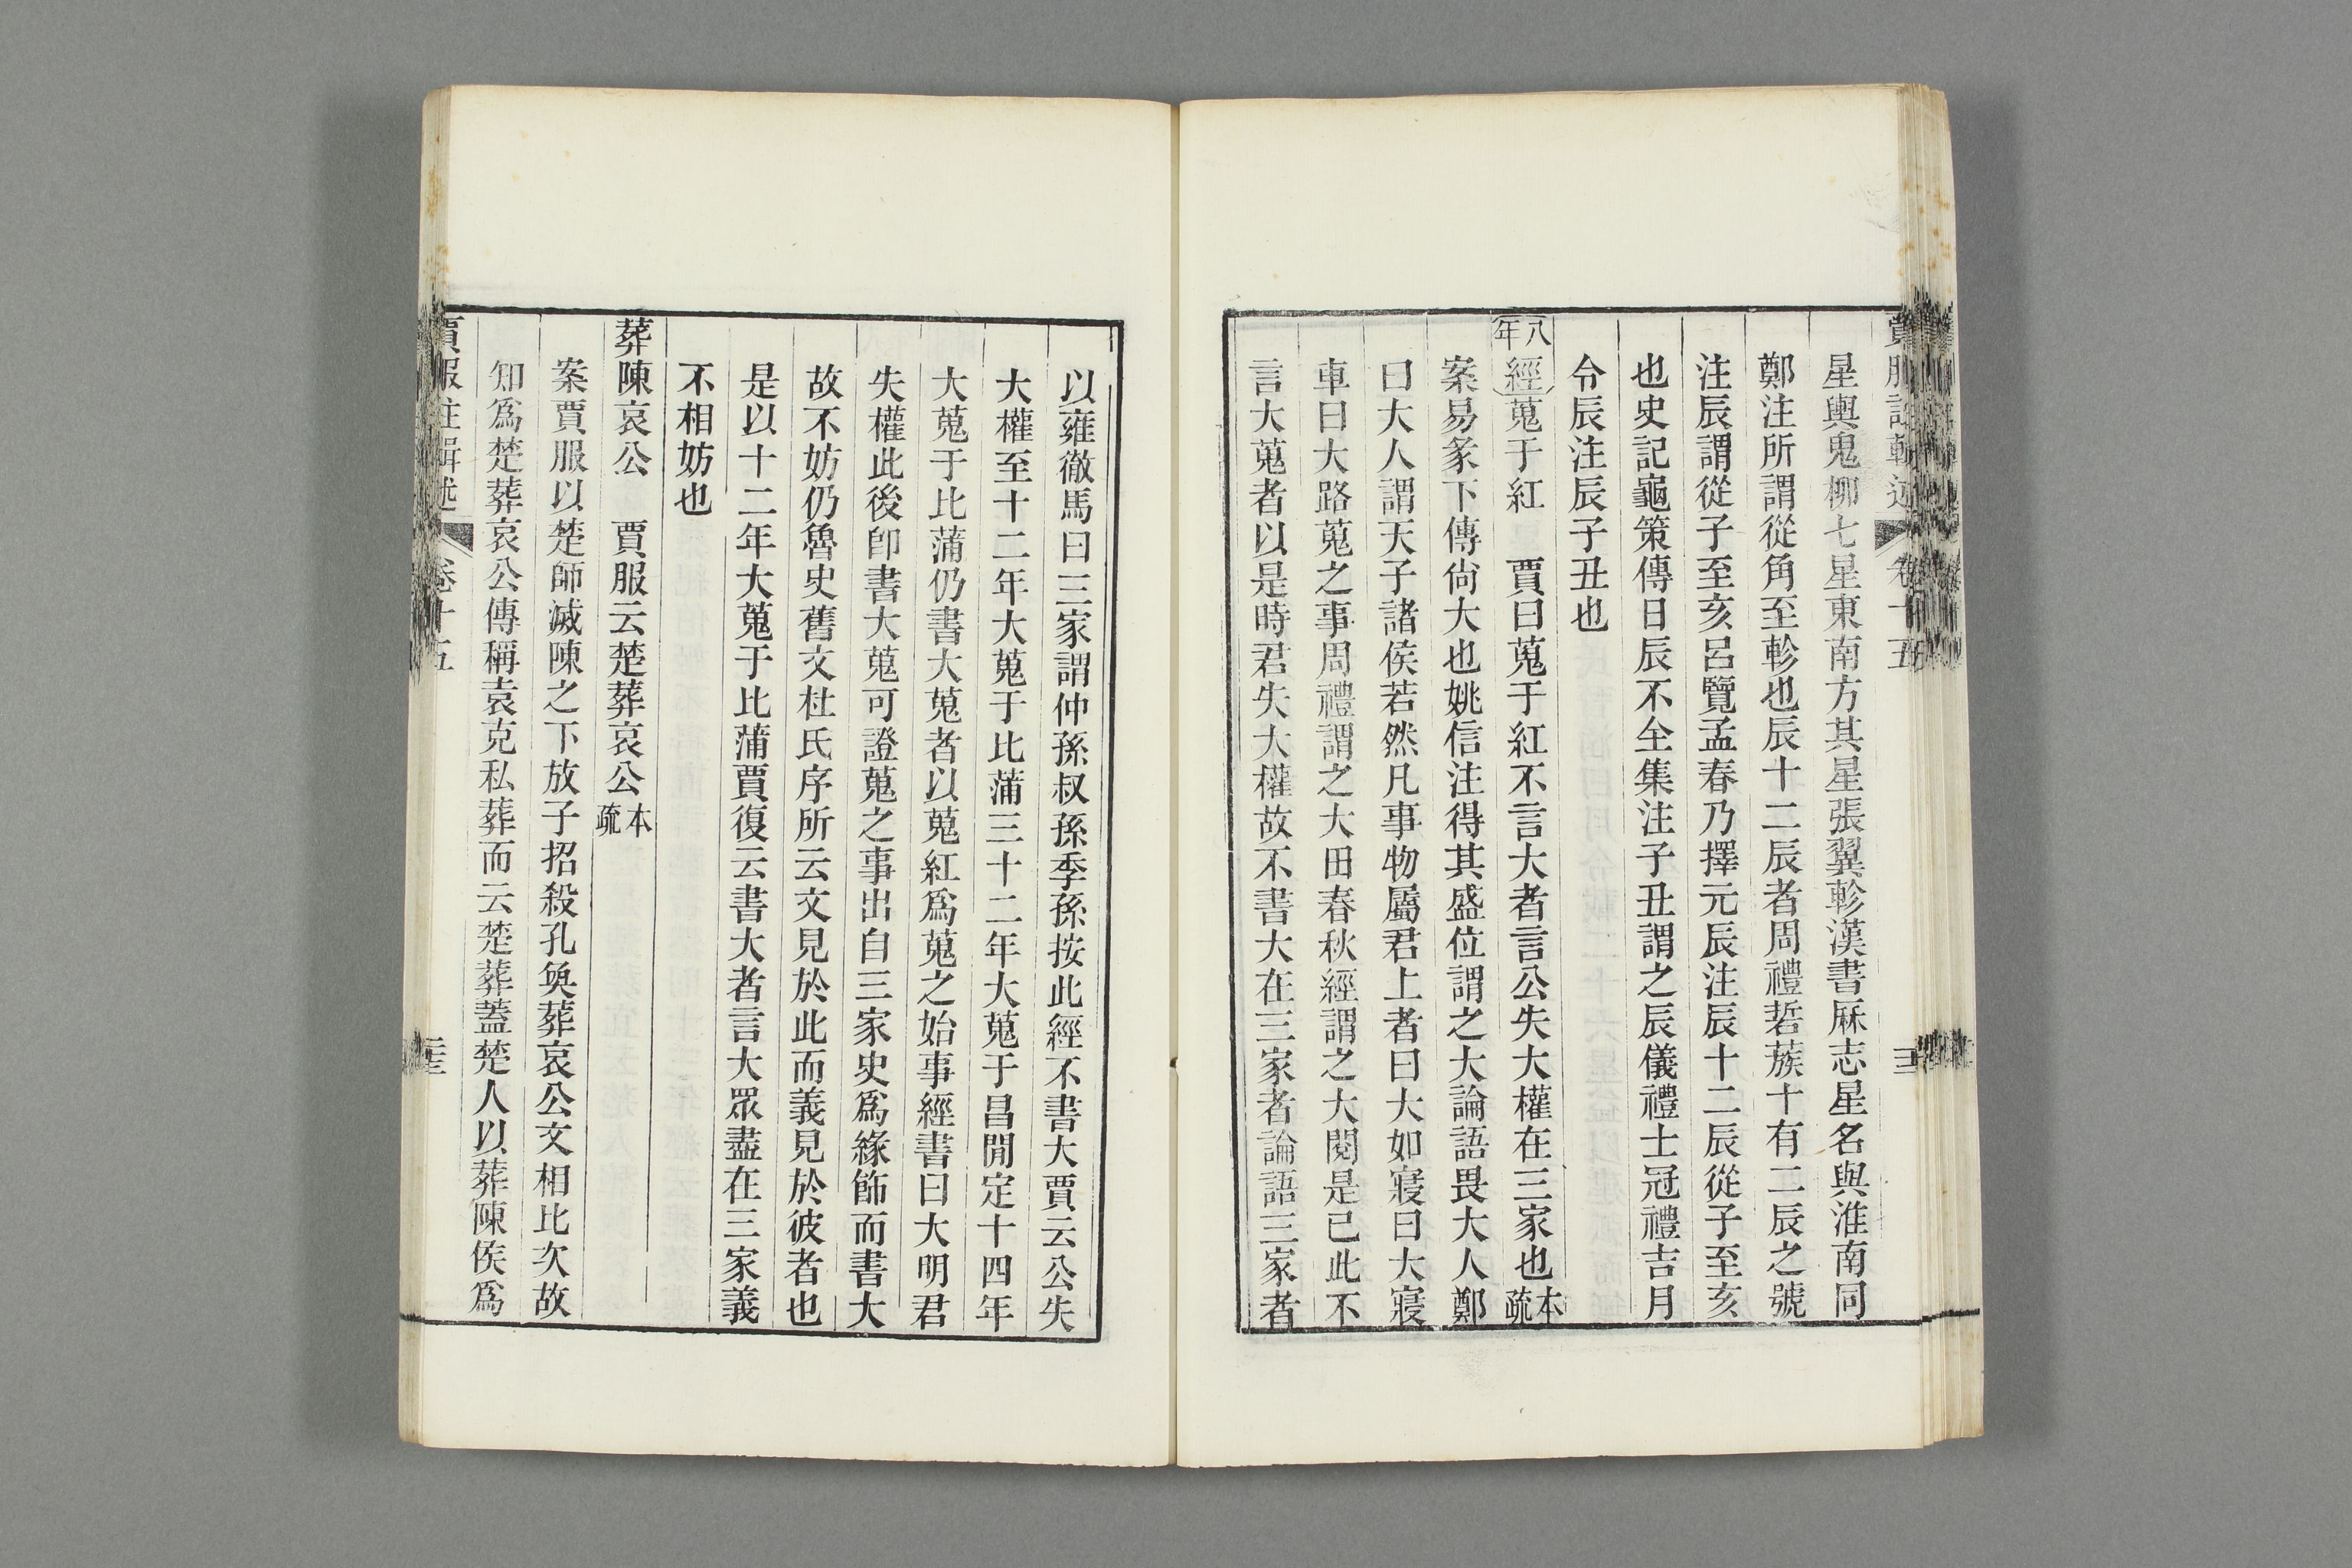 星輿鬼柳七星東南方其星張翼軫漢書厤志星名與淮南同
鄭注所謂從角至軫也辰十二辰者周禮硩蔟十有二辰之號
注辰謂從子至亥呂覽孟春乃擇元辰注辰十二辰從子至亥
也史記龜策傳日辰不全集注子丑謂之辰儀禮士冠禮吉月
令辰注辰子丑也
八年 經 蒐于紅 賈曰蒐于紅不言大者言公失大權在三家也本疏
案易彖下傳尙大也姚信注得其盛位謂之大論語畏大人鄭
曰大人謂天子諸侯若然凡事物屬君上者曰大如寢曰大寢
車曰大路蒐之事周禮謂之大田春秋經謂之大閱是已此不
言大蒐者以是時君失大權故不書大在三家者論語三家者
以雍徹馬曰三家謂仲孫叔孫季孫按此經不書大賈云公失
大權至十二年大蒐于比蒲三十二年大蒐于昌閒定十四年
大蒐于比蒲仍書大蒐者以蒐紅爲蒐之始事經書曰大明君
失權此後卽書大蒐可證蒐之事出自三家史爲緣飾而書大
故不妨仍魯史舊文杜氏序所云文見於此而義見於彼者也
是以十二年大蒐于比蒲賈復云書大者言大眾盡在三家義
不相妨也
葬陳哀公 賈服云楚葬哀公本疏
案賈服以楚師滅陳之下放子招殺孔奐葬哀公文相比次故
知爲楚葬哀公傳稱袁克私葬而云楚葬蓋楚人以葬陳侯爲
賈服注輯述 卷十五